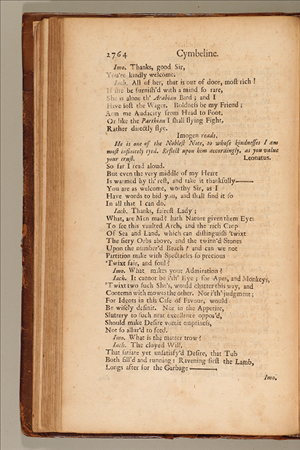 2764 Cymbeline.
Imo. Thanks, good Sir,
You're kindly welcome.
Iach. All of her, that is out of door, most rich!
If she be furnish'd with a mind so rare,
She is alone th' Arabian Bird; and I
Have lost the Wager. Boldness be my Friend;
Arm me Audacity from Head to Foot,
Or like the Parthian I shall flying fight,
Rather directly flye.
Imogen reads.
He is one of the Noblest Note, to whose kindnesses I am
most infinitely tyed. Reflect upon him accordingly, as you value
your trust. Leonatus.
So far I read aloud.
But even the very middle of my Heart
Is warmed by th' rest, and take it thankfully——
You are as welcome, worthy Sir, as I
Have words to bid you, and shall find it so
In all that I can do.
Iach. Thanks, fairest Lady;
What, are Men mad? hath Nature given them Eyes
To see this vaulted Arch, and the rich Crop
Of Sea and Land, which can distinguish 'twixt
The fiery Orbs above, and the twinn'd Stones
Upon the number'd Beach? and can we not
Partition make with Spectacles so precious
'Twixt fair, and foul?
Imo. What makes your Admiration?
Iach. It cannot be i'th' Eye; for Apes, and Monkeys,
'Twixt two such She's, would chatter this way, and
Contemn with mowes the other. Nor i'th' judgment;
For Ideots in this Case of Favour, would
Be wisely definit. Nor in the Appetite,
Sluttery to such neat excellence oppos'd,
Should make Desire vomit emptiness,
Not so allur'd to feed.
Imo. What is the matter trow?
Iach. The cloyed Will,
That satiate yet unsatisfy'd Desire, that Tub
Both fill'd and running: Ravening first the Lamb,
Longs after for the Garbage———
Imo.